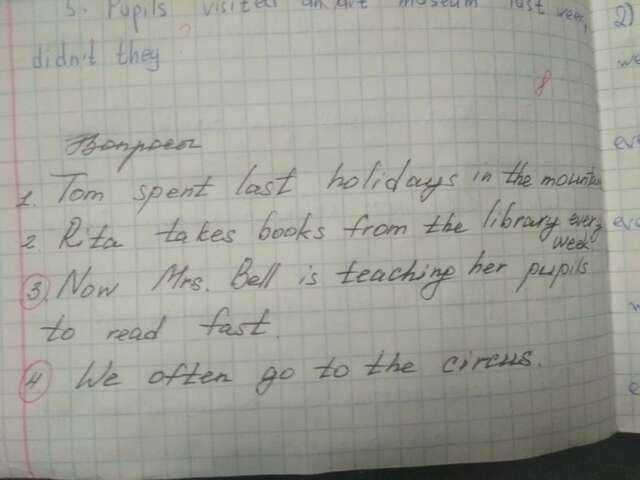 5. Pupils visited an art museum last week,
didn't they ?
8
Вопросы
1. Tom spent last holidays in the mountain
2. Rita takes books from the library every
week
3. Now Mrs. Bell is teaching her pupils
to read fast.
4 We often go to the circus.
2)
we
eve
eve
e